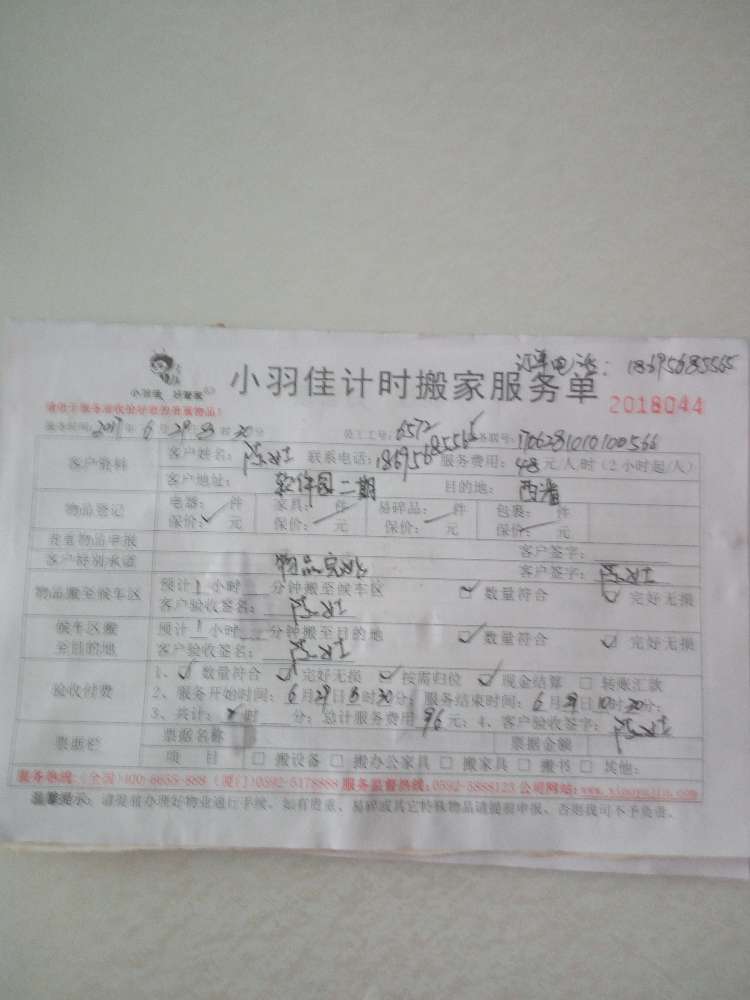 订单电话: 18695685565
小羽佳 好管家
小羽佳计时搬家服务单
2018044
请您于服务前收检好珍贵贵重物品!
服务时间: 2017年6月29日8时30分 员工工号: 6572 服务联号: 170628101010056 6
客户资料 客户姓名: 陈 联系电话: 18695685565 服务费用: 48元/人/时 (2小时起/人)
客户地址: 软件园二期 目的地:
物品登记 电器: 件 家具: 件 易碎品: 件 包裹: 件
保价: 元 保价: 元 保价: 元 保价: 元
贵重物品申报 客户签字:
客户特别承诺 物品完好 客户签字:
物品搬至候车区 预计1小时 分钟搬至候车区 数量符合 完好无损
客户验收签名:
候车区搬至目的地 预计1小时 分钟搬至目的地 数量符合 完好无损
客户验收签名:
验收付费 1、 数量符合 完好无损 按需归位 现金结算 转账汇款
2、服务开始时间: 6月29日8时30分; 服务结束时间: 6月29日10时30分;
3、共计: 时 分; 总计服务费用 96元; 4、客户验收签字:
票据栏 票据名称 票据金额
项目 搬设备 搬办公家具 搬家具 搬书 其他:
服务热线: (全国)400-6655-888 (厦门)0592-5178888 服务监督热线: 0592-5888123 公司网站: www.xiaoyujia.com
温馨提示: 请提前办理好物业通行手续。如有贵重、易碎或其它特殊物品请提前申报、否则我司不予负责。